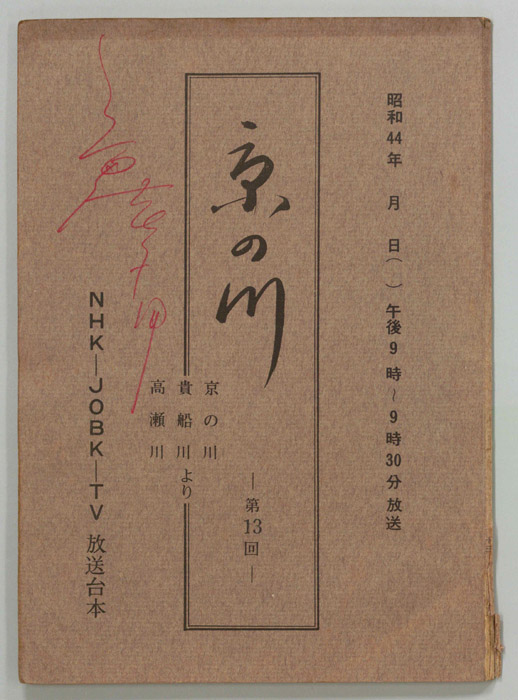 昭和44年 月 日( )午後9時~9時30分放送
京の川
―第13回―
京の川
貴船川より
高瀬川
NHK―JOBK―TV 放送台本